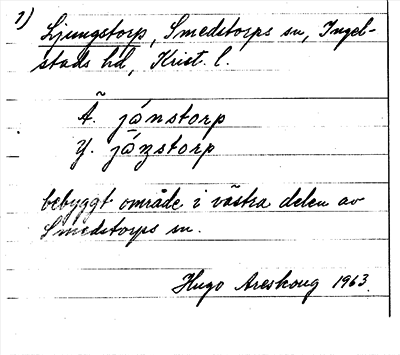 1) Ljungstorp, Smedstorps sn, Ingel-
stads hd, Krist. l.
Ä. jánstorp
Y. jãŋstorp
bebyggt område i västra delen av
Smedstorps sn.
Hugo Areskoug 1963.